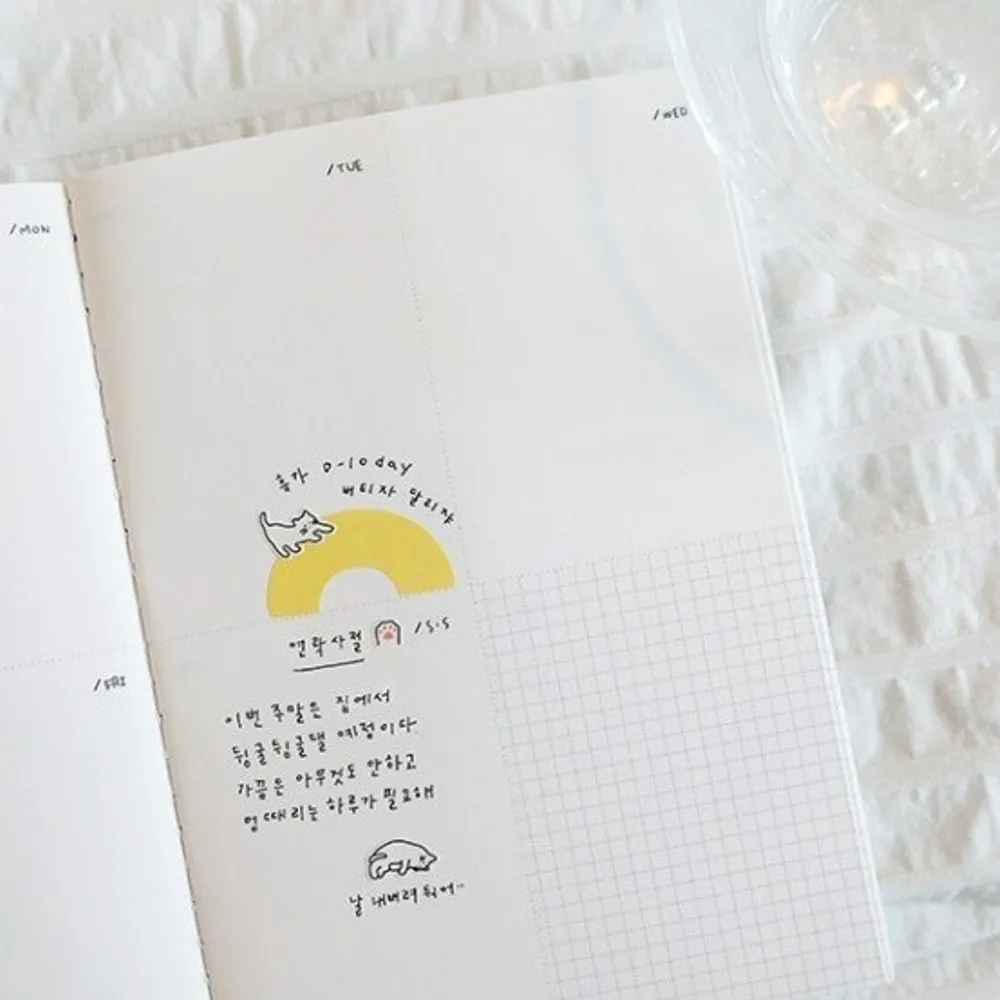 /MON
/TUE
/WED
휴가 D-10 day
버티자 달리자
/FRI
연락사절
/S·S
이번 주말은 집에서
뒹굴뒹굴댈 예정이다
가끔은 아무것도 안하고
멍 때리는 하루가 필요해
날 내버려 둬어··